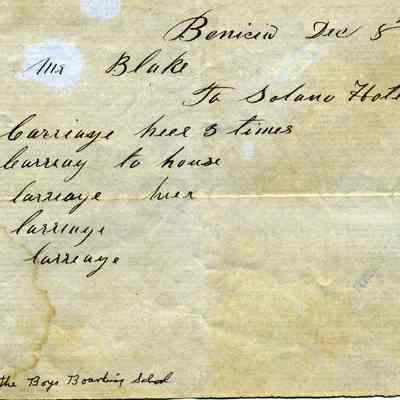 Benicia Dec 8
Mr Blake
To Solano Hote
Carriage heer 3 times
Carriag to house
Carriage heer
Carriage
Carriage
the Boys Boarding School